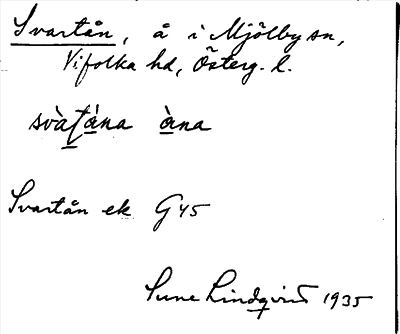 Svartån, å i Mjölby sn,
Vifolka hd, Österg. l.
svàṯána àna
Svartån ek G45
Sune Lindqvist 1935